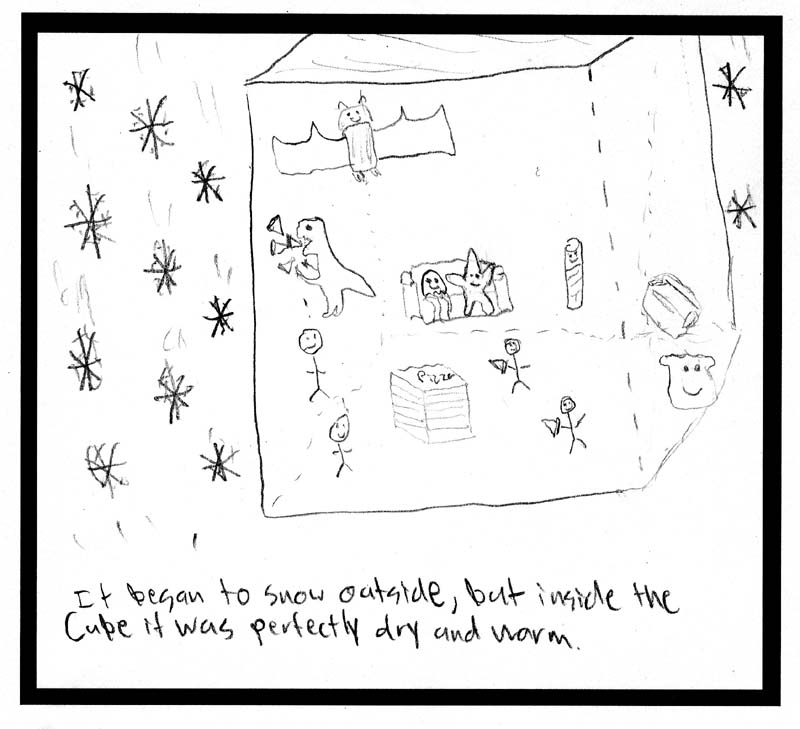 Pizza
It began to snow outside, but inside the
Cube it was perfectly dry and warm.